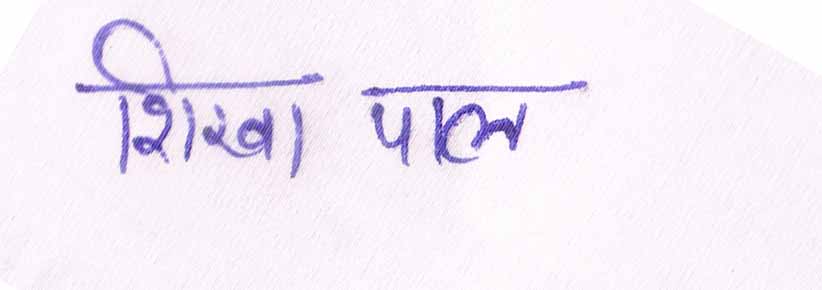 शिखा पाल